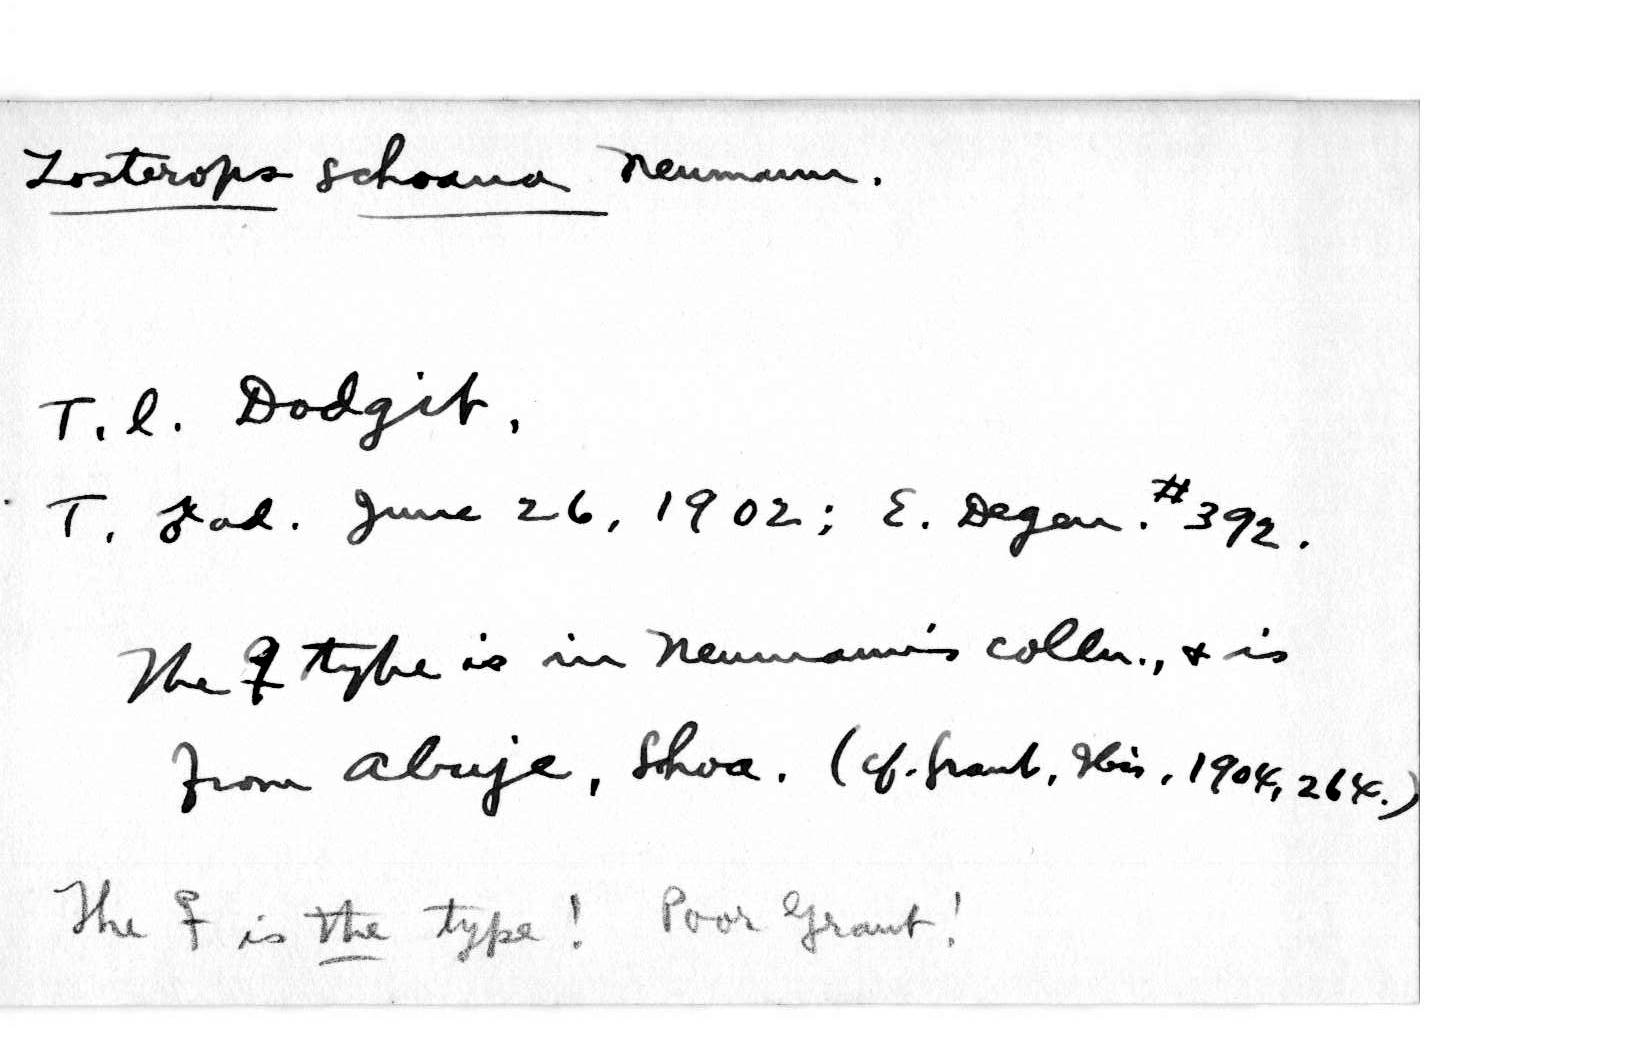 Zosterops schoana Neumann.
T. l. Dodgit,
T. ♂ad. June 26, 1902; E. Degen. #392.
The ♀ type is in Neumann's colln., & is
from Abuje, Shoa. (cf. Grant, Ibis, 1904, 264.)
The ♀ is the type! Poor Grant!